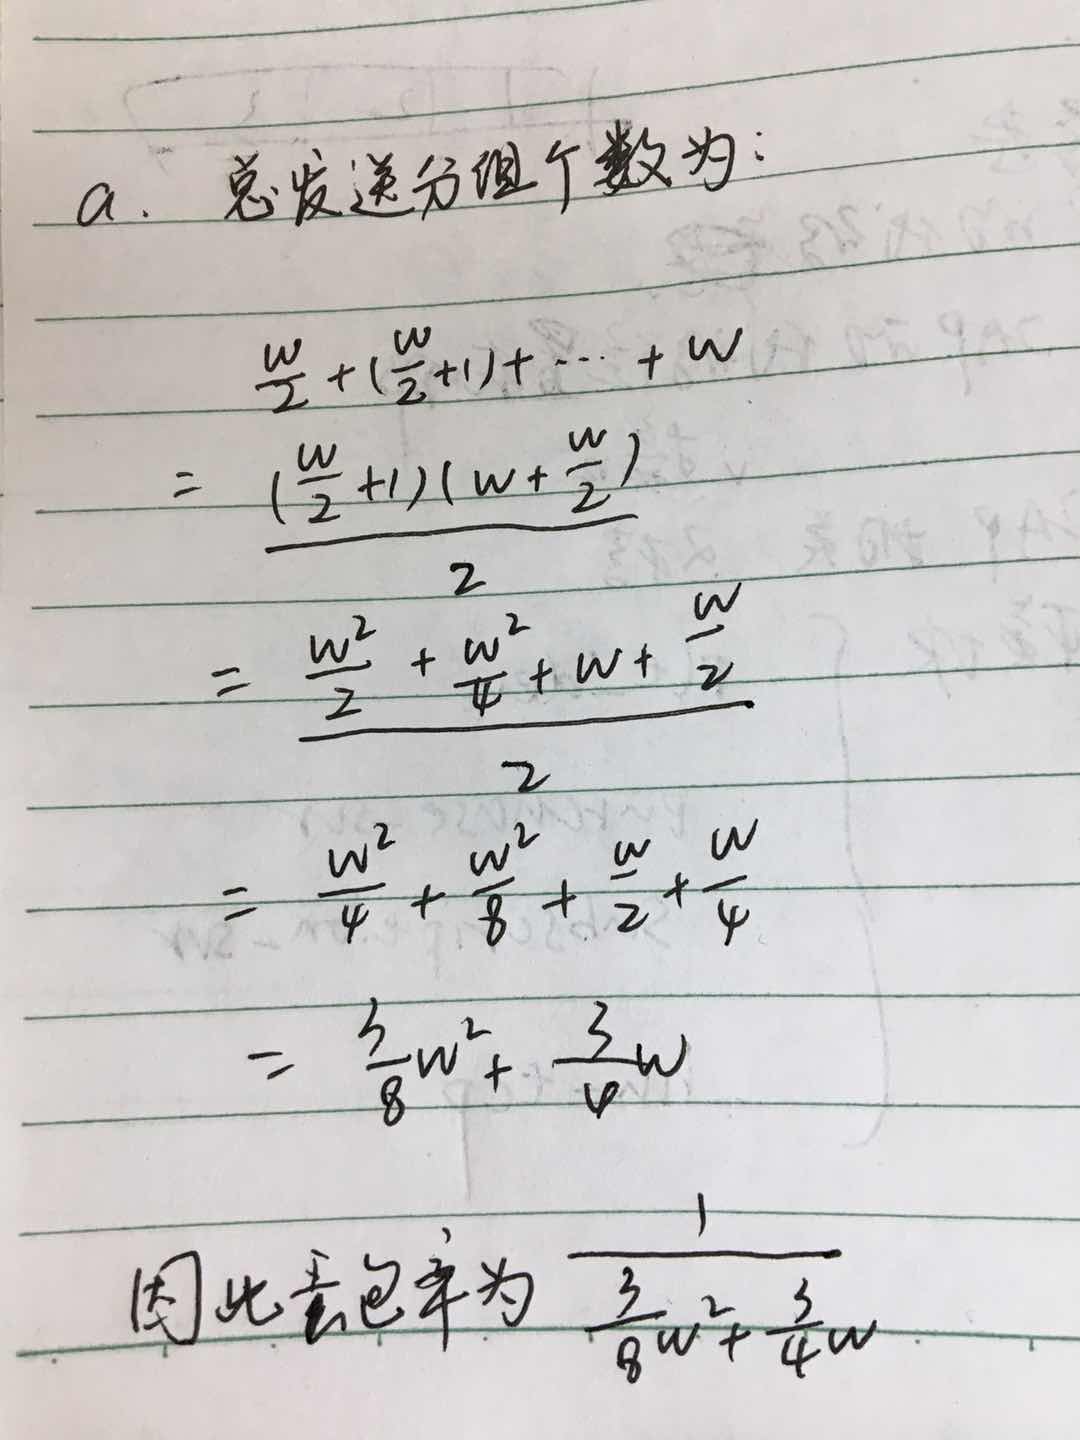 a. 总发送分组个数为:
w/2 + (w/2 + 1) + ··· + w
= (w/2 + 1)(w + w/2) / 2
= (w²/2 + w²/4 + w + w/2) / 2
= w²/4 + w²/8 + w/2 + w/4
= 3/8 w² + 3/4 w
因此丢包率为 1 / (3/8 w² + 3/4 w)